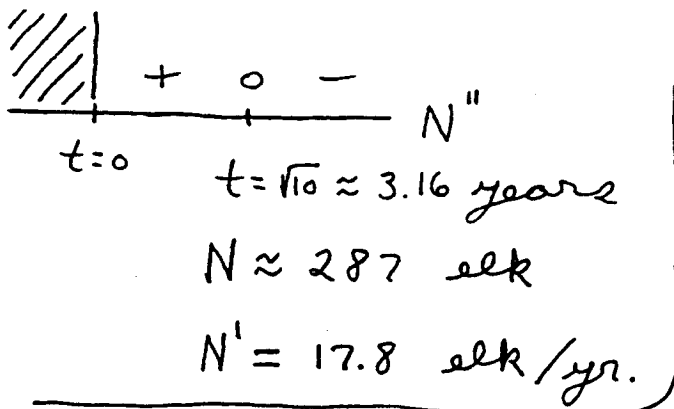 + 0 −
N"
t=0
t=√10 ≈ 3.16 years
N ≈ 287 elk
N' = 17.8 elk/yr.